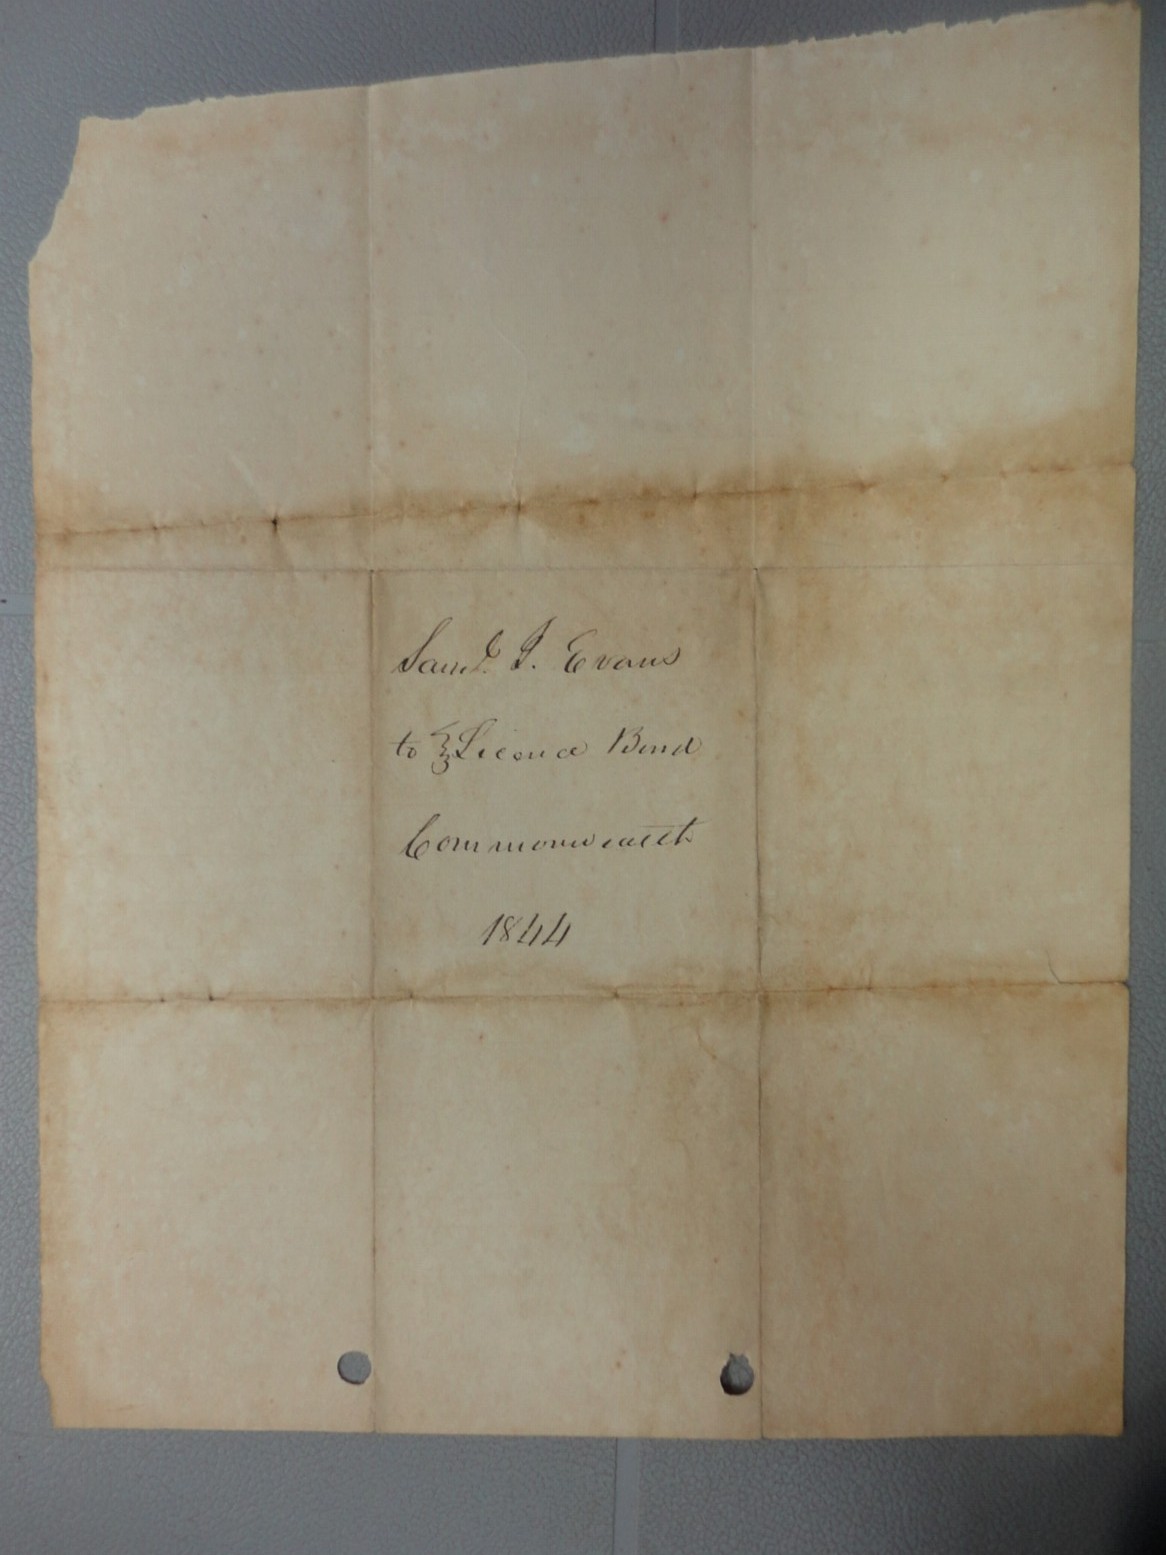 Saml. J. Evans
to } Licence Bond
Commonwealth
1844